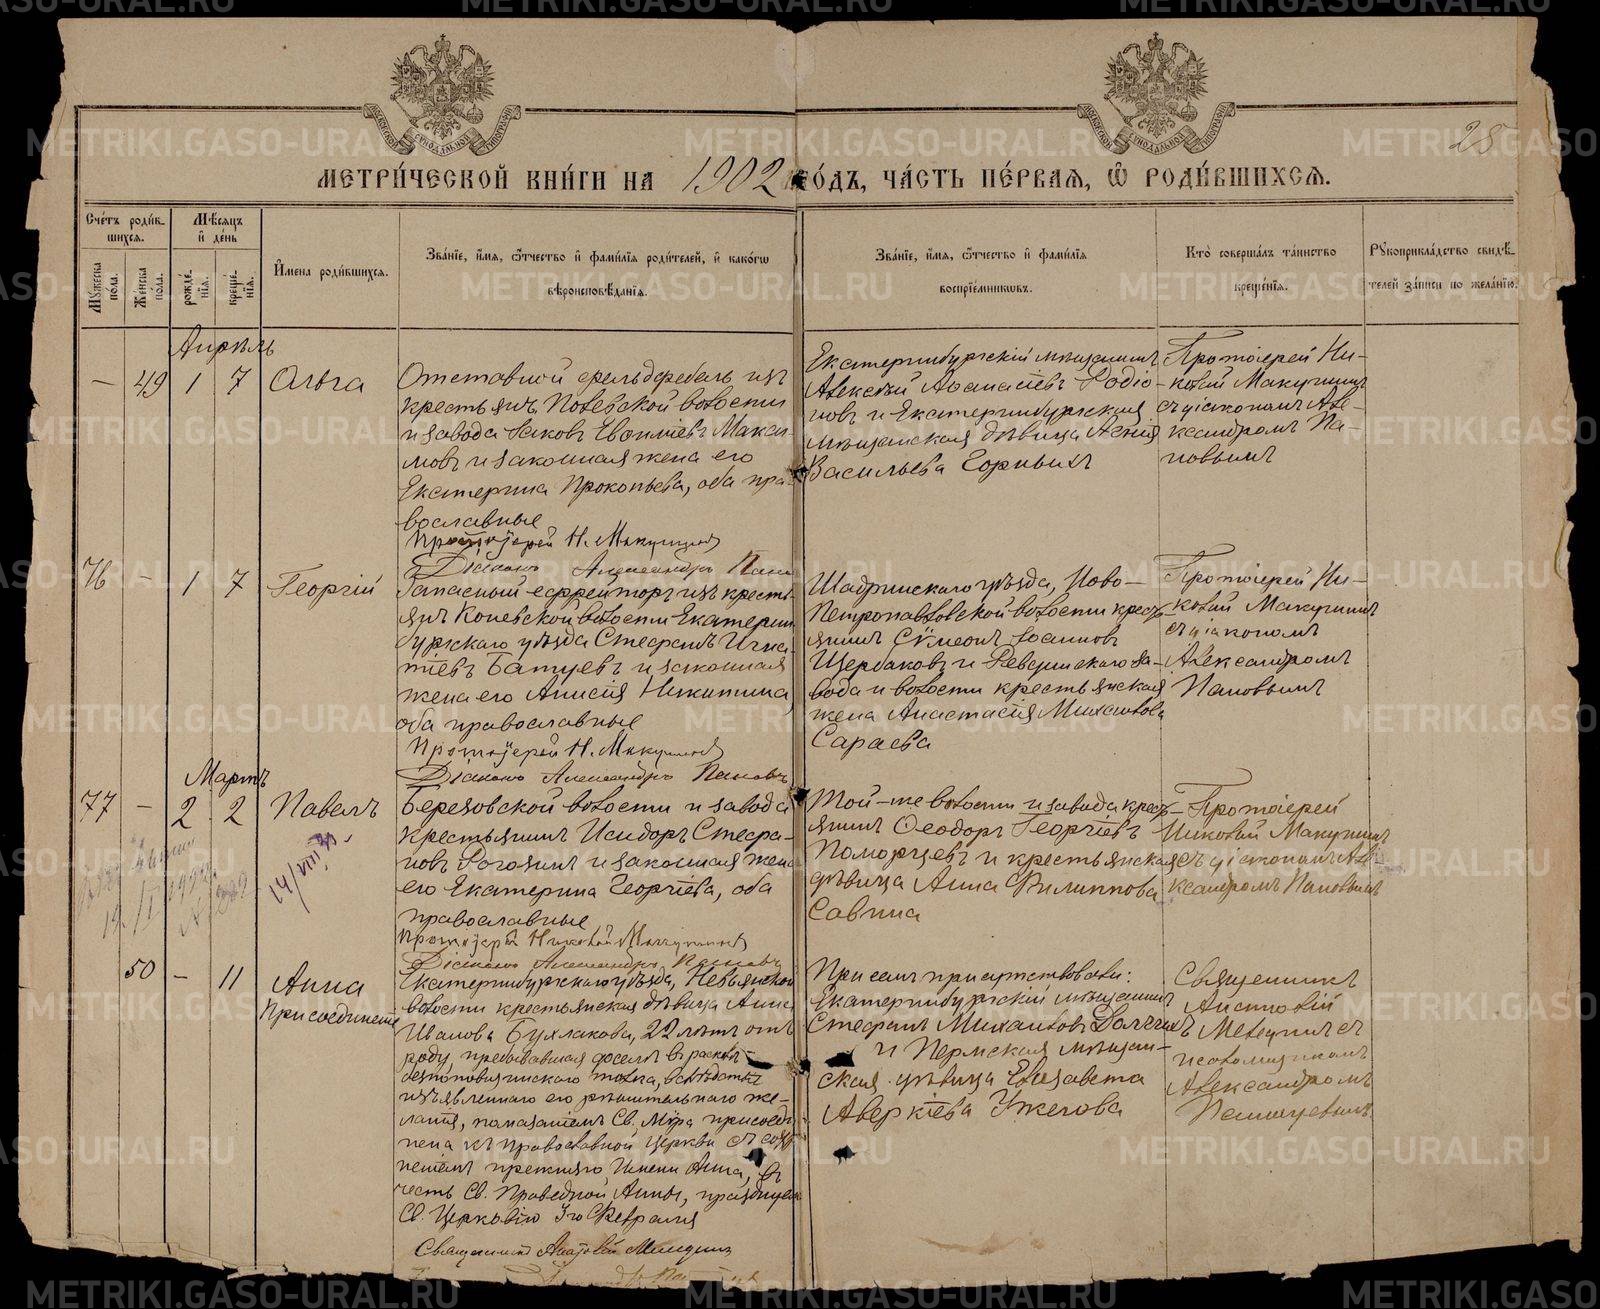 28
МЕТРИ́ЧЕСКОЙ КНИ́ГИ НА 1902 ГО́ДЪ, ЧА́СТЬ ПЕ́РВАѦ, Ѽ РОДИ́ВШИХСѦ.
Сче́тъ роди́в-
шихсѧ.
Мꙋ́жеска по́ла.
Же́нска по́ла.
Мѣ́сѧцъ и҆ де́нь
рожде́нїѧ.
креще́нїѧ.
И҆́мена роди́вшихсѧ.
Зва́нїе, и҆́мѧ, ѻ҆́тчество и҆ фами́лїѧ роди́телей, и҆ како́гѡ
вѣроисповѣ́данїѧ.
Зва́нїе, и҆́мѧ, ѻ҆́тчество и҆ фами́лїѧ
воспрїе́мникѡвъ.
Кто̀ соверша́лъ та́инство
креще́нїѧ.
Рꙋкоприкла́дство свидѣ́-
телей за́писи по жела́нїю.
Апрѣль
— 49 1 7 Ольга
Отставной фельдфебель изъ
крестьянъ Полевской волости
и завода Іаковъ Евсиліевъ Макси-
мовъ и законная жена его
Екатерина Прокопьева, оба пра-
вославные
Протоіерей Н. Макушинъ
Діаконъ Александръ Пановъ
Екатеринбургскій мѣщанинъ
Алексѣй Аѳанасіевъ Родіо-
новъ и Екатеринбургская
мѣщанская дѣвица Ксенія
Васильева Горныхъ
Протоіерей Ни-
колай Макушинъ
съ діакономъ Але-
ксандромъ Па-
новымъ
76 — 1 7 Георгій
Запасный ефрейторъ изъ кресть-
янъ Коневской волости Екатерин-
бургскаго уѣзда Стефанъ Игна-
тіевъ Батуевъ и законная
жена его Анисія Никитина,
оба православные
Протоіерей Н. Макушинъ
Діаконъ Александръ Пановъ
Шадринскаго уѣзда, Ново-
Петропавловской волости кресть-
янинъ Сѵмеонъ Іоанновъ
Щербаковъ и Ревдинскаго за-
вода и волости крестьянская
жена Анастасія Михайлова
Сараева
Протоіерей Ни-
колай Макушинъ
съ діакономъ
Александромъ
Пановымъ
Мартъ
77 — 2 2 Павелъ
14/VIII
Березовской волости и завода
крестьянинъ Исидоръ Стефа-
новъ Рогозинъ и законная жена
его Екатерина Георгіева, оба
православные
Протоіерей Николай Макушинъ
Діаконъ Александръ Пановъ
Той-же волости и завода кресть-
янинъ Ѳеодоръ Георгіевъ
Поморцевъ и крестьянская
дѣвица Анна Филиппова
Савина
Протоіерей
Николай Макушинъ
съ діакономъ Але-
ксандромъ Пановымъ
50 — 11 Анна
Присоединеніе
Екатеринбургскаго уѣзда, Невьянской
волости крестьянская дѣвица Анна
Иванова Бухлакова, 22 лѣтъ отъ
роду, пребывавшая доселѣ въ расколѣ
безпоповщинскаго толка, вслѣдствіе
изъявленнаго ею рѣшительнаго же-
ланія, помазаніемъ Св. Мѵра присоеди-
нена къ Православной Церкви съ сохра-
неніемъ прежняго имени Анна, въ
честь Св. Праведной Анны, празднуемой
Св. Церковію 3го Февраля
Священникъ
При семъ присутствовали:
Екатеринбургскій мѣщанинъ
Стефанъ Михайловъ Долгихъ
и Пермская мѣщан-
ская дѣвица Елизавета
Аверкіева Ужегова
Священникъ
съ
псаломщикомъ
Александромъ